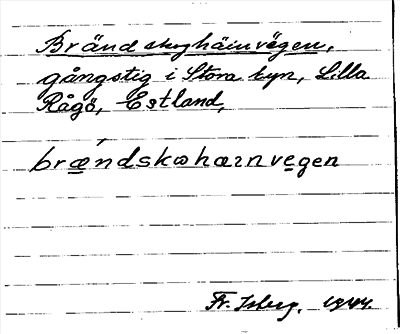 Brändskoghäinvägen,
gångstig i Stora byn, Lilla
Rågö, Estland,
brændskohæinvegen
Fr. Isberg. 1944.